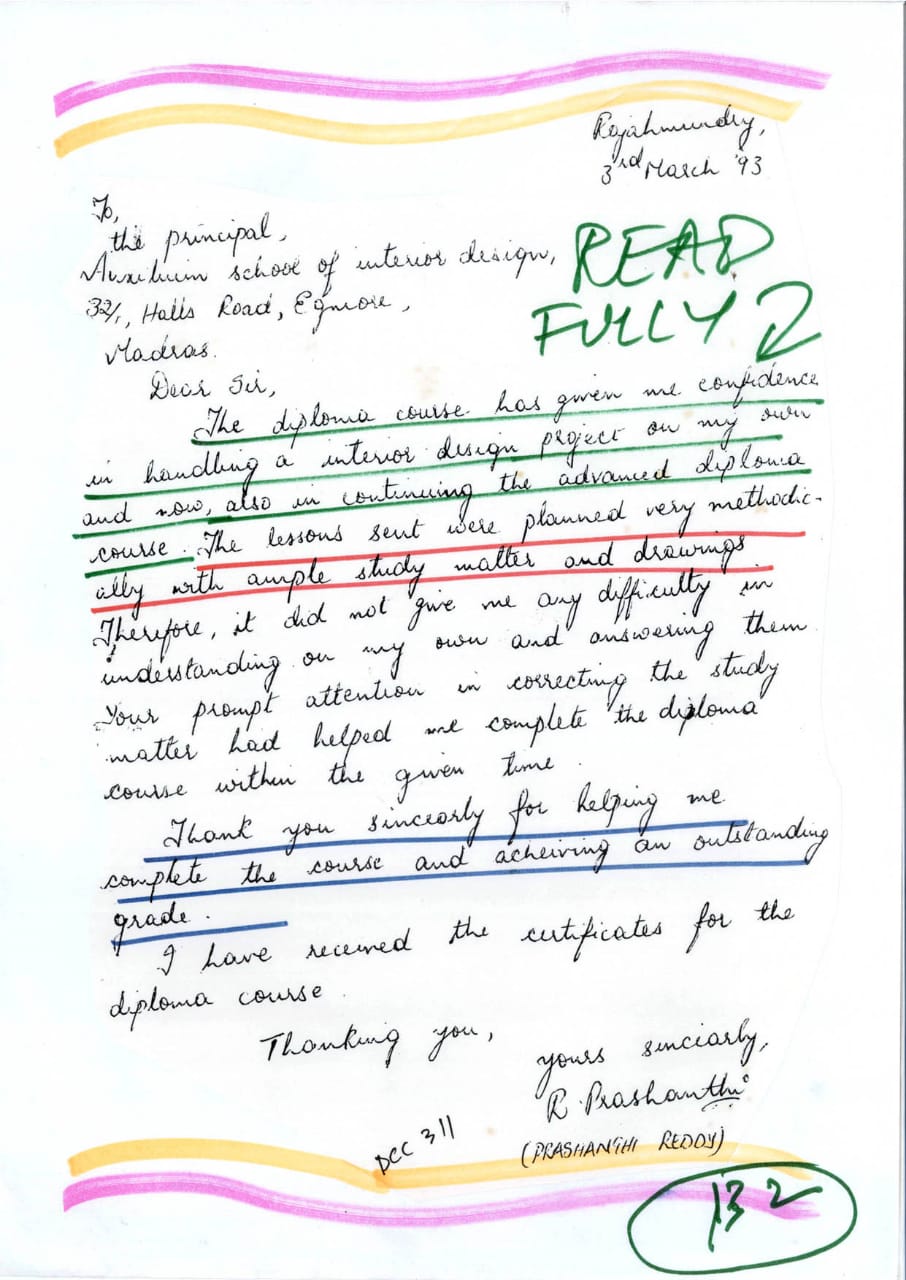 Rajahmundry,
3rd March '93
To,
the principal,
Auxilium school of interior design,
32/1, Halls Road, Egmore,
Madras.
READ
FULLY
Dear Sir,
The diploma course has given me confidence
in handling a interior design project on my own
and now, also in continuing the advanced diploma
course. The lessons sent were planned very methodic-
ally with ample study matter and drawings
Therefore, it did not give me any difficulty in
understanding on my own and answering them.
Your prompt attention in correcting the study
matter had helped me complete the diploma
course within the given time.
Thank you sincearly for helping me
complete the course and acheiving an outstanding
grade.
I have received the certificates for the
diploma course.
Thanking you,
yours sinciarly,
R. Prashanthi
(PRASHANTHI REDDY)
DCC 311
132